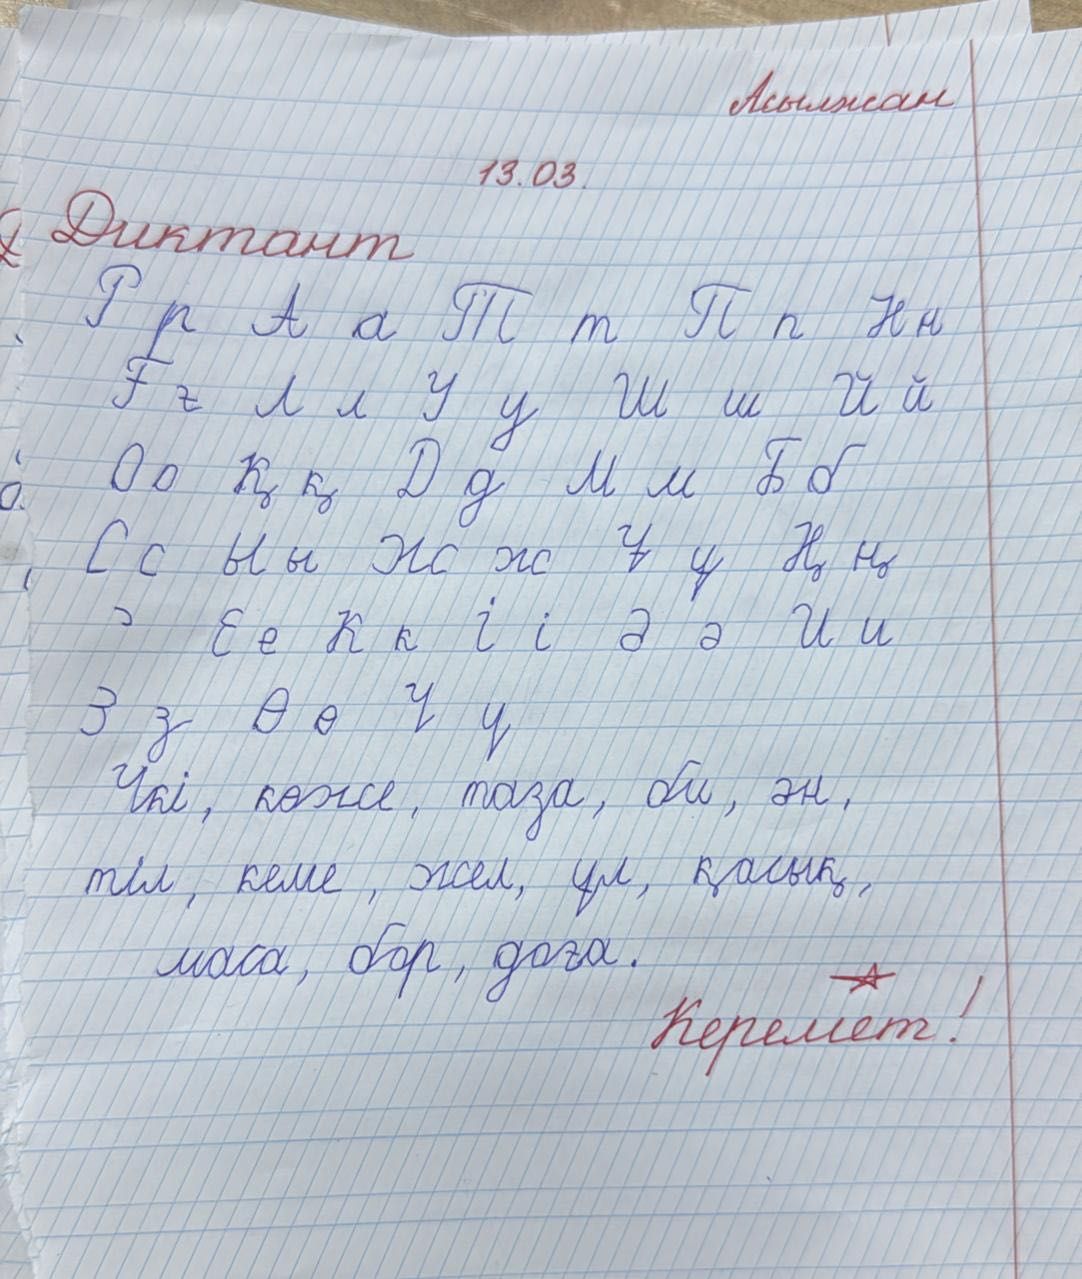 Асылжан
13.03.
Диктант
Р р А а Т т П п Н н
Ғ ғ Л л У у Ш ш Й й
О о Қ қ D д М м Б б
С с Ы ы Ж ж Ұ ұ Ң ң
Е е К к І і Ә ә И и
З з Ө ө Ү ү
Үкі, көже, таза, би, ән,
тіл, кеме, жел, ұл, қасық,
маса, бор, доға.
Керемет!